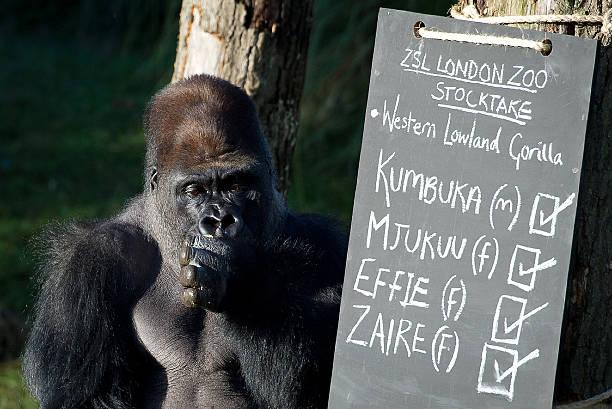 ZSL LONDON ZOO
STOCKTAKE
• Western Lowland Gorilla
KUMBUKA (m) ☑
MJUKUU (f) ☑
EFFIE (F) ☑
ZAIRE (F) ☑